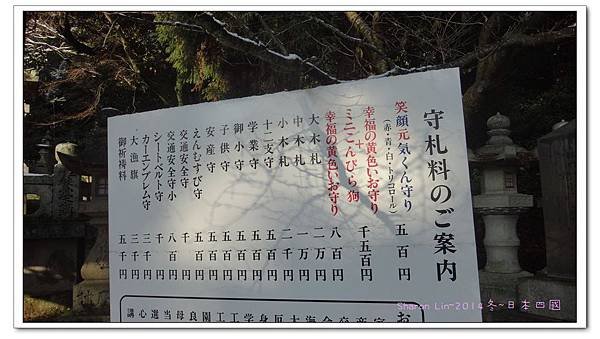 守札料のご案内
笑顔元気くん守り 五百円
(赤・青・白・トリコロール)
幸福の黄色いお守り
+
ミニこんぴら狗 千五百円
幸福の黄色いお守り 八百円
大木札 二万円
中木札 一万円
小木札 二千円
十二支守 五百円
学業守 五百円
御小守 五百円
子供守 五百円
安産守 五百円
えんむすび守 五百円
交通安全守 千円
交通安全守小 八百円
シートベルト守 千円
カーエンブレム守 三千円
大漁旗 三千円
御祈祷料 五千円
Sharon Lin~2014冬~日本四國